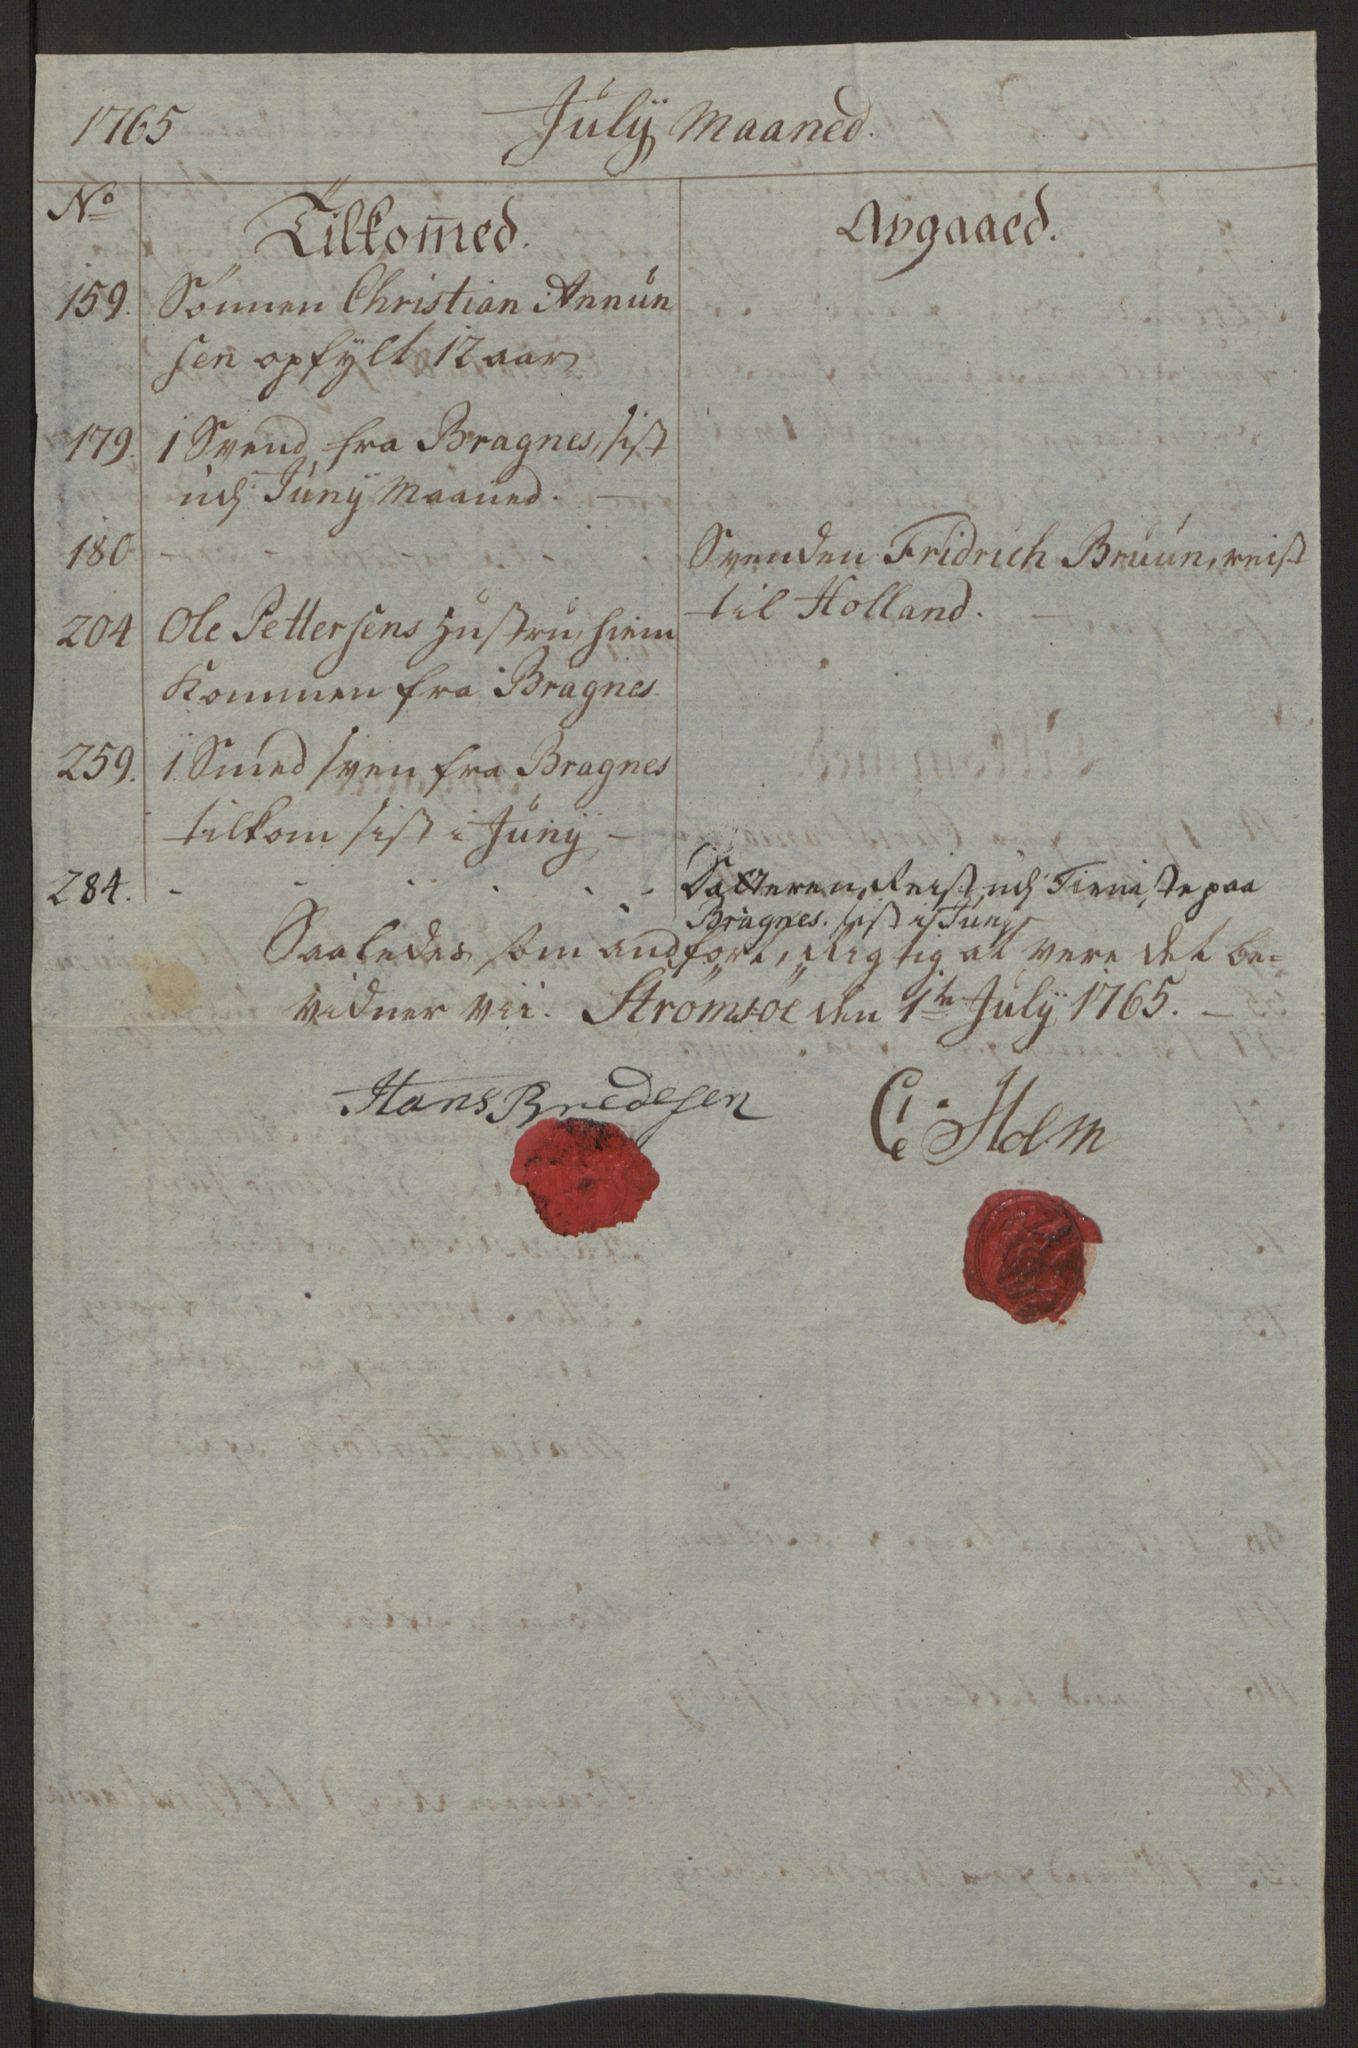 1765 Julÿ Maaned.
No Tilkommed. Avgaaed.
159. Sönnen Christian Annün
sen opfÿlt 12 aar
179. 1 Svend fra Bragnes, sist
udj Junÿ Maaned. —
180 - - - Svenden Fridrich Bruun, reist
til Holland. —
204 Ole Pettersens Hustru, hiem
Kommen fra Bragnes.
259. 1 Smed sven fra Bragnes
tilkom sist i Junÿ —
284. - - - - - - Datteren, Reist udj Tieniste paa
Bragnes. sist i Junÿ
Saaledes som andført, Rigtig at være det be=
vidner vii. Strömsöe den 1te Julÿ 1765. —
Hans Bredesen
C: Holm